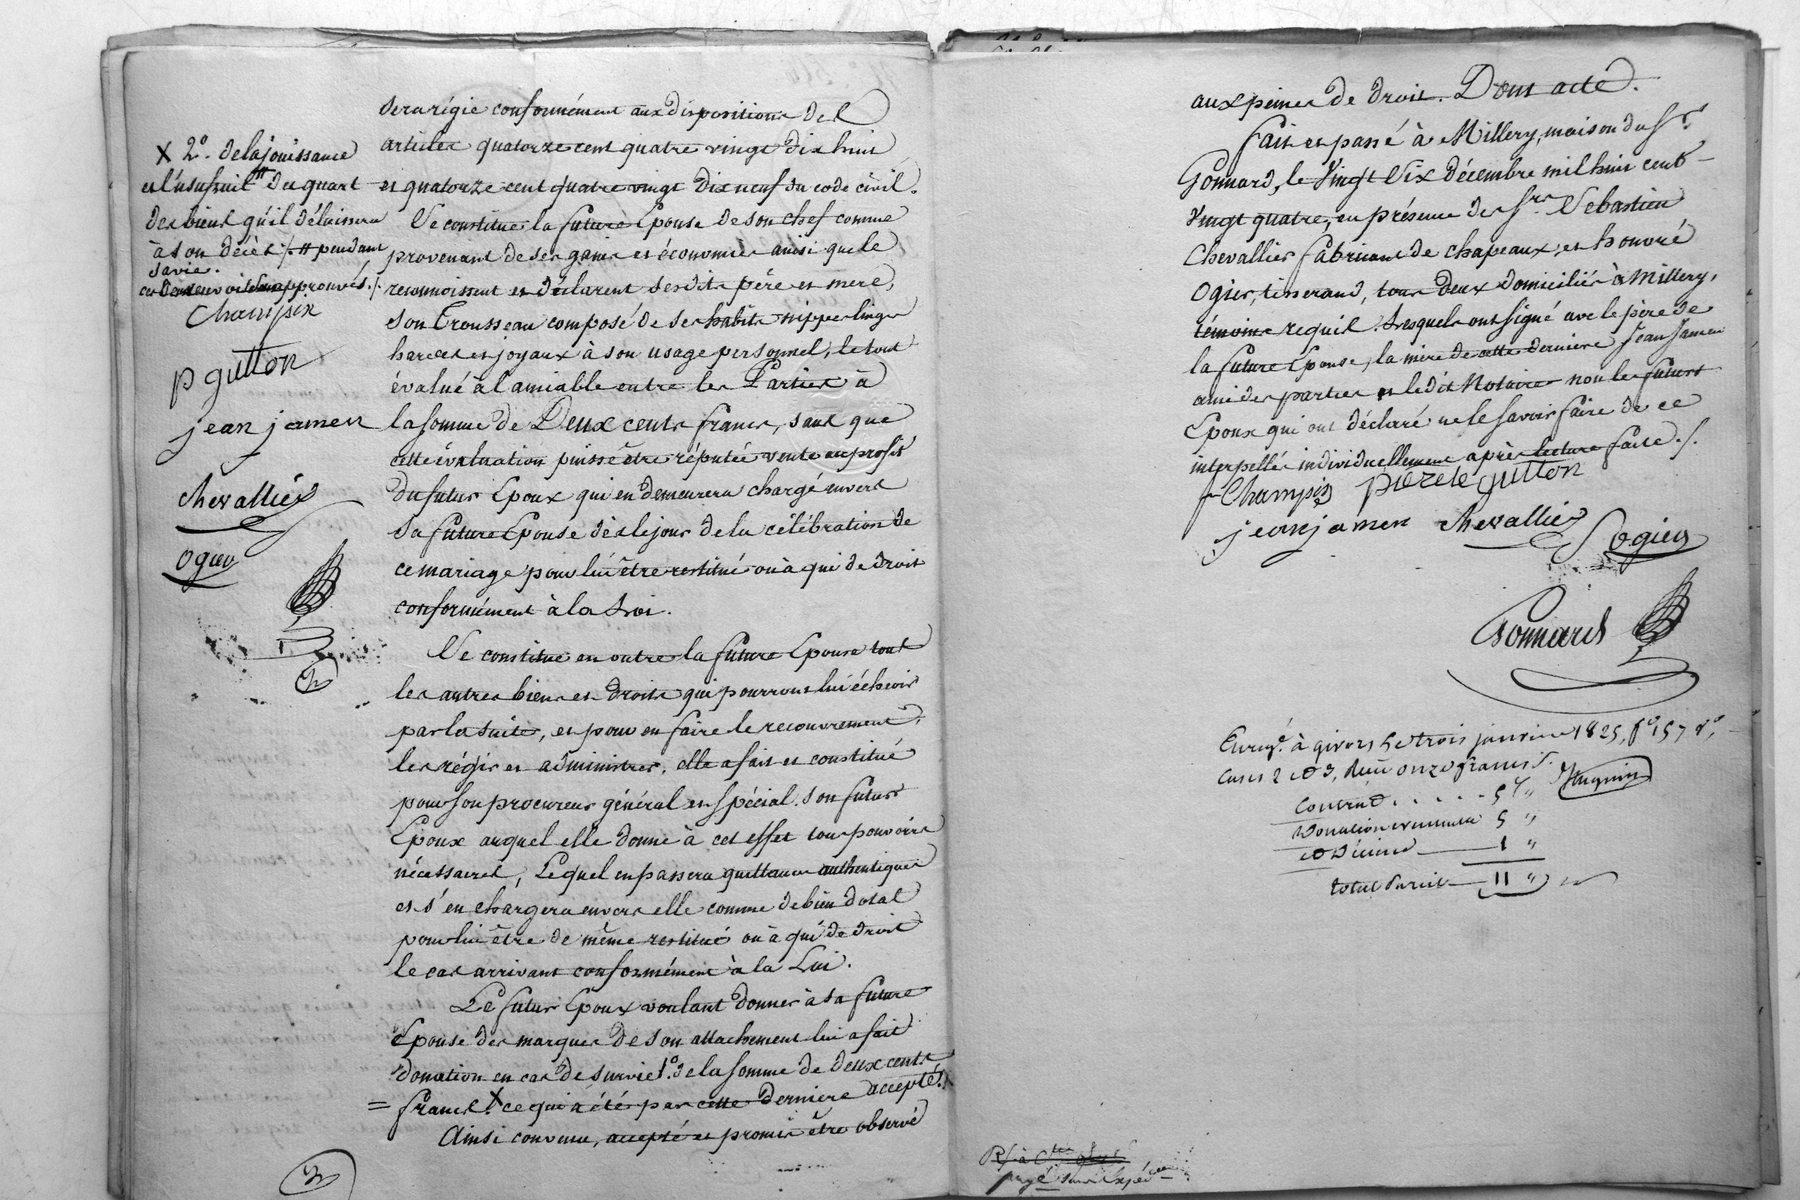 sera régie conformément aux dispositions des
articles quatorze cent quatre vingt dix huit
et quatorze cent quatre vingt dix neuf du code civil.
Se constitue la future Epouse de son chef comme
provenant de ses gains et économies ainsi que le
reconnoissent et déclarent sesdits père et mere,
son Trousseau composé de ses habits nippes linges
hardes et joyaux à son usage personnel, le tout
évalué à l'amiable entre les Parties à
la somme de Deux cents francs, sans que
cette évaluation puisse être réputée vente au profit
du futur Epoux qui en demeurera chargé envers
sa future Epouse dès le jour de la célébration de
ce mariage pour lui être restitué ou à qui de droit
conformément à la Loi.
Se constitue en outre la future Epouse tout
les autres biens et droits qui pourront lui échevir
par la suite, et pour en faire le recouvrement,
les régir et administrer, elle a fait et constitué
pour son procureur général et spécial son futur
Epoux auquel elle donne à cet effet tous pouvoirs
nécessaires, Lequel en passera quittance authentiques
et s'en chargera envers elle comme de bien dotal
pour lui être de même restitué ou à qui de droit
le cas arrivant conformément à la Loi.
Le futur Epoux voulant donner à sa future
Epouse des marques de son attachement lui a fait
donation en cas de survie 1º. de la somme de deux cents
= francs. X ce qui a été par cette derniere accepté.
Ainsi convenu, accepté et promis être observé
X 2º. de la jouissance
et l'usufruit # du quart
des biens qu'il délaissera
à son décès ./. # pendant
sa vie.
ces deux renvois approuvés ./.
Champsix
p gutton
jean jamen
Chevallier
Ogier
aux peines de droit. Dont acte.
fait et passé à Millery, maison du Sr.
Gonnard, le Vingt Six décembre mil huit cent
vingt quatre, en présence de Srs. Sebastien
Chevallier fabricant de chapeaux, et honoré
Ogier, tisserand, tous deux domiciliés à Millery,
témoins requis. Lesquels ont signé avec le père de
la future Epouse, la mère de cette derniere Jean Jamen
ami des parties et ledit Notaire non les futurs
Epoux qui ont déclaré ne le savoir faire de ce
interpellés individuellement après lecture faite ./.
fr Champsix pierre gutton
jean jamen Chevallier Ogier
Gonnard
Enregé. à givors le trois janvier 1825, fº 157 vº,
cases 2 et 3, Reçu onze francs
Contrat . . . . . 5 "
Donation eventuelle 5 "
et Décime 1 "
total Onze 11 "
payé sur l'expéd.